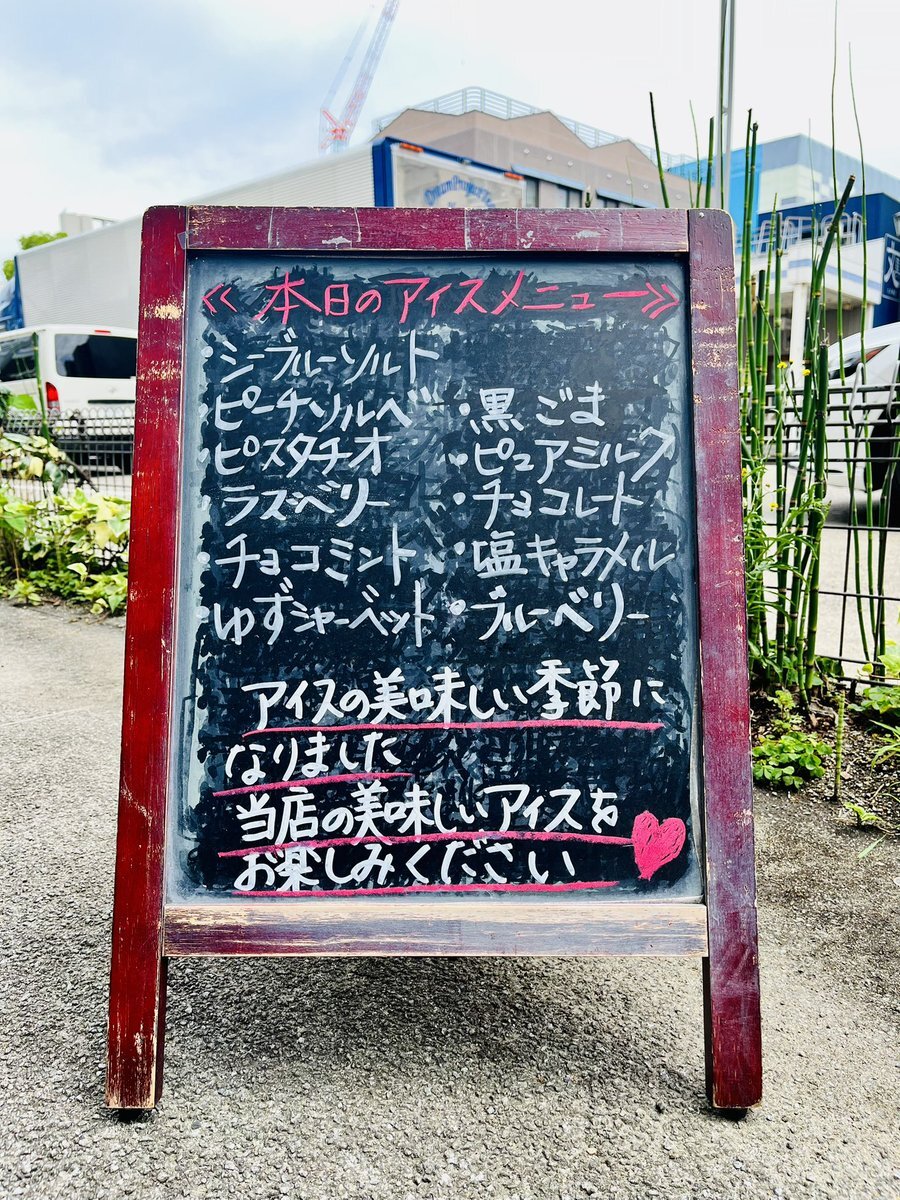 <<本日のアイスメニュー>>
・シーブルーソルト
・ピーチソルベ ・黒ごま
・ピスタチオ ・ピュアミルク
・ラズベリー ・チョコレート
・チョコミント ・塩キャラメル
・ゆずシャーベット ・ブルーベリー
アイスの美味しい季節に
なりました
当店の美味しいアイスを
お楽しみください